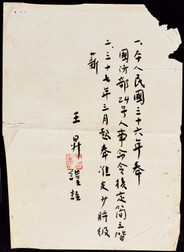 一、本人民國三十六年奉
國防部24年人事命令核定簡三階
二、三十七年三月起奉准支少將級
薪
王昇 謹註